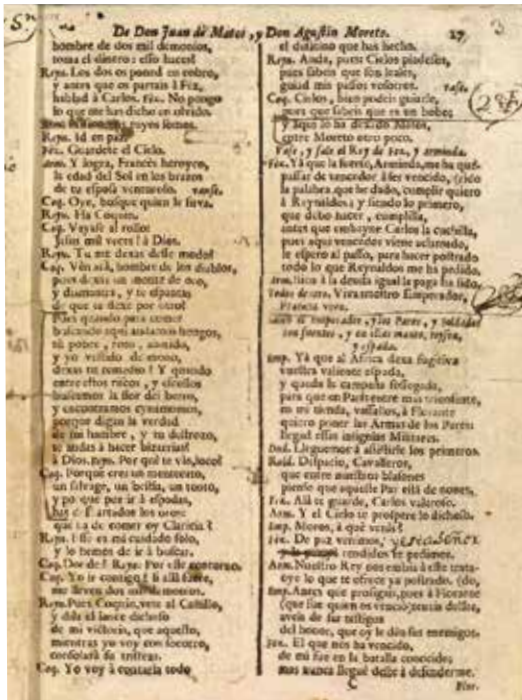 De Don Juan de Matos, y Don Agustin Moreto. 27
hombre de dos mil demonios,
toma el dinero: esso haces?
Reyn. Los dos os poned en cobro,
y antes que os partais à Fèz,
hablad à Carlos. Fèz. No pongo
lo que me has dicho en olvido.
reyes somos.
Reyn. Id en paz.
Fèz. Guardete el Cielo.
Arm. Y logra, Francès heroyco,
la edad del Sol en los brazos
de tu esposa venturoso. vanse.
Coq. Oye, busque quien le sirva.
Reyn. Ha Coquin.
Coq. Vayase al rollo:
Jesus mil veces! à Dios.
Reyn. Tu me dexas desse modo?
Coq. Ven acà, hombre de los diablos,
pues dexas un monte de oro,
y diamantes, y te espantas
de que te dexe por otro?
Pues quando para comer
buscando aqui andamos hongos,
tù pobre, roto,
y yo vestido de mono,
dexas tu remedio? Y quando
entre estos riscos, y escollos
buscamos la flor del berro,
y encontramos
porque digan la verdad
de mi hambre, y tu destrozo,
te andas à hacer bizarrias?
à Dios. Reyn. Por què te vàs, loco?
Coq. Porque eres un mentecato,
un salvage, un bestia, un tonto,
y
los
que ha de comer oy Claricia?
Reyn. Esse es mi cuidado solo,
y lo hemos de ir à buscar.
Coq. Donde? Reyn. Por este contorno.
Coq. Yo ir contigo?
me lleven dos mil demonios.
Reyn. Pues Coquin, vete al Castillo,
y dila el lance dichoso
de mi victoria, que aquesto,
mientras yo voy con socorro,
consolarà su tristeza.
Coq. Yo voy à contarla todo
el desatino que has hecho.
Reyn. Anda, pues: Cielos piadosos,
pues sabeis que son leales,
guiad mis passos vosotros. vase.
Coq. Cielos, bien podeis guiarle,
pues que sabeis que es un bobo;
y aqui lo ha dexado Matos,
entre Moreto otro poco.
Vase, y sale el Rey de Fèz, y Arminda.
Fèz. Yà que la suerte, Arminda, me ha que
passar de vencedor à ser vencido, (rido
la palabra que he dado, cumplir quiero
à Reynaldos; y siendo lo primero,
que debo hacer, cumplilla,
antes que embayne Carlos la cuchilla,
pues aqui vencedor viene aclamado,
le espero al passo, para hacer postrado
todo lo que Reynaldos me ha pedido.
Arm. Sirva à la deuda igual la paga
Todos dentro. Viva nuestro Emperador,
Francia viva.
Salen el Emperador, y los Pares, y Soldados
con fuentes, y en ellas manto,
y espada.
Emp. Yà que al Africa dexa fugitiva
vuestra valiente espada,
y queda la campaña sossegada,
para que en Parìs entre mas triunfante,
en mi tienda, vassallos, à Florante
quiero poner las Armas de los Pares:
llegad essas insignias Militares.
Lleguemos à assistirle los primeros.
Rold. Despacio, Cavalleros,
que entre nuestros blasones
pienso que aqueste Par està de nones.
Fèz. Allà te guarde, Carlos valeroso.
Arm. Y el Cielo te prospere lo dichoso.
Emp. Moros, à què venìs?
Fèz. De paz venimos,
rendidos te pedimos.
Arm. Nuestro Rey nos embia à este trata-
oye lo que te ofrece ya postrado. (do,
Emp. Antes que prosigais, pues à Florante
(que fue quien os venciò) teneis delante,
aveis de ser testigos
del honor, que oy le dàn sus enemigos.
Fèz. El que nos ha vencido,
de mi fue en la batalla conocido;
mas nunca
Flor.